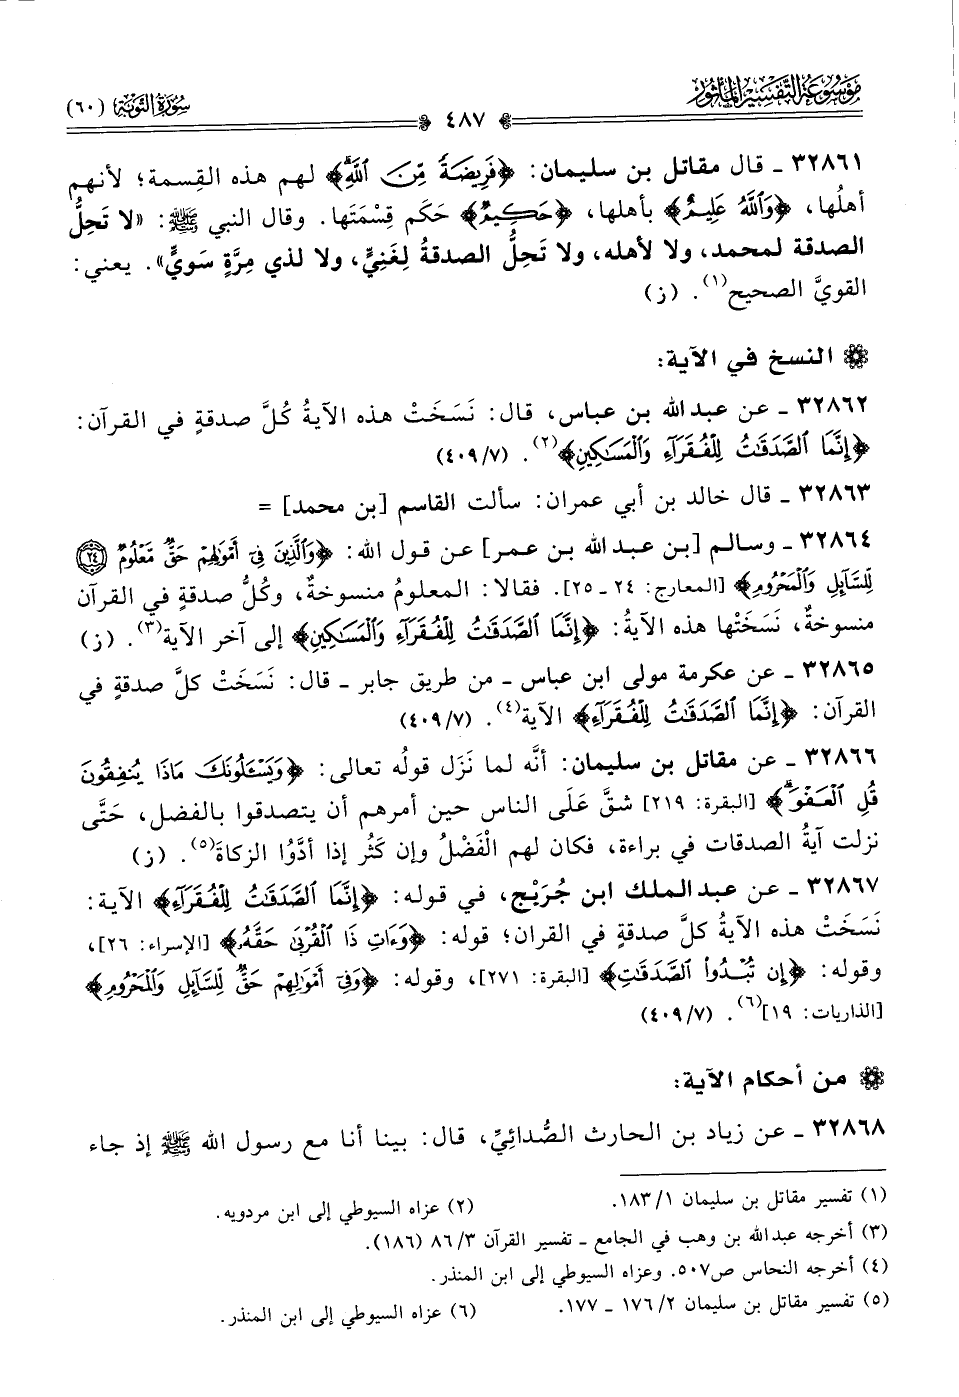 موسوعة التفسير المأثور
٤٨٧
سورة التوبة (٦٠)
٣٢٨٦١ ـ قال مقاتل بن سليمان: ﴿فَرِيضَةً مِّنَ ٱللَّهِ﴾ لهم هذه القِسمة؛ لأنهم
أهلُها، ﴿وَٱللَّهُ عَلِيمٌ﴾ بأهلها، ﴿حَكِيمٌ﴾ حَكَم قِسْمَتَها. وقال النبي ﷺ: «لا تَحِلُّ
الصدقة لمحمد، ولا لأهله، ولا تَحِلُّ الصدقةُ لِغَنِيٍّ، ولا لذي مِرَّةٍ سَويٍّ». يعني:
القويَّ الصحيح(١). (ز)
النسخ في الآية:
٣٢٨٦٢ ـ عن عبد الله بن عباس، قال: نَسَخَتْ هذه الآيةُ كُلَّ صدقةٍ في القرآن:
﴿إِنَّمَا ٱلصَّدَقَٰتُ لِلْفُقَرَآءِ وَٱلْمَسَٰكِينِ﴾(٢). (٤٠٩/٧)
٣٢٨٦٣ ـ قال خالد بن أبي عمران: سألت القاسم [بن محمد] =
٣٢٨٦٤ ـ وسالم [بن عبد الله بن عمر] عن قول الله: ﴿وَٱلَّذِينَ فِىٓ أَمْوَٰلِهِمْ حَقٌّ مَّعْلُومٌ ٢٤
لِّلسَّآئِلِ وَٱلْمَحْرُومِ﴾ [المعارج: ٢٤ ـ ٢٥]. فقالا: المعلومُ منسوخةٌ، وكُلُّ صدقةٍ في القرآن
منسوخةٌ، نَسَخَتْها هذه الآيةُ: ﴿إِنَّمَا ٱلصَّدَقَٰتُ لِلْفُقَرَآءِ وَٱلْمَسَٰكِينِ﴾ إلى آخر الآية(٣). (ز)
٣٢٨٦٥ ـ عن عكرمة مولى ابن عباس ـ من طريق جابر ـ قال: نَسَخَتْ كلَّ صدقةٍ في
القرآن: ﴿إِنَّمَا ٱلصَّدَقَٰتُ لِلْفُقَرَآءِ﴾ الآية(٤). (٤٠٩/٧)
٣٢٨٦٦ ـ عن مقاتل بن سليمان: أنَّه لما نَزَل قولُه تعالى: ﴿وَيَسْـَٔلُونَكَ مَاذَا يُنفِقُونَ
قُلِ ٱلْعَفْوَ﴾ [البقرة: ٢١٩] شقَّ عَلَى الناس حين أمرهم أن يتصدقوا بالفضل، حَتَّى
نزلت آيةُ الصدقات في براءة، فكان لهم الْفَضْلُ وإن كَثُر إذا أدَّوُا الزكاةَ(٥). (ز)
٣٢٨٦٧ ـ عن عبد الملك ابن جُرَيْج، في قوله: ﴿إِنَّمَا ٱلصَّدَقَٰتُ لِلْفُقَرَآءِ﴾ الآية:
نَسَخَتْ هذه الآيةُ كلَّ صدقةٍ في القران؛ قوله: ﴿وَءَاتِ ذَا ٱلْقُرْبَىٰ حَقَّهُۥ﴾ [الإسراء: ٢٦]،
وقوله: ﴿إِن تُبْدُوا۟ ٱلصَّدَقَٰتِ﴾ [البقرة: ٢٧١]، وقوله: ﴿وَفِىٓ أَمْوَٰلِهِمْ حَقٌّ لِّلسَّآئِلِ وَٱلْمَحْرُومِ﴾
[الذاريات: ١٩](٦). (٤٠٩/٧)
من أحكام الآية:
٣٢٨٦٨ ـ عن زياد بن الحارث الصُّدائِيِّ، قال: بينا أنا مع رسول الله ﷺ إذ جاء
(١) تفسير مقاتل بن سليمان ١/ ١٨٣. (٢) عزاه السيوطي إلى ابن مردويه.
(٣) أخرجه عبدالله بن وهب في الجامع ـ تفسير القرآن ٣/ ٨٦ (١٨٦).
(٤) أخرجه النحاس ص٥٠٧. وعزاه السيوطي إلى ابن المنذر.
(٥) تفسير مقاتل بن سليمان ٢/ ١٧٦ ـ ١٧٧. (٦) عزاه السيوطي إلى ابن المنذر.